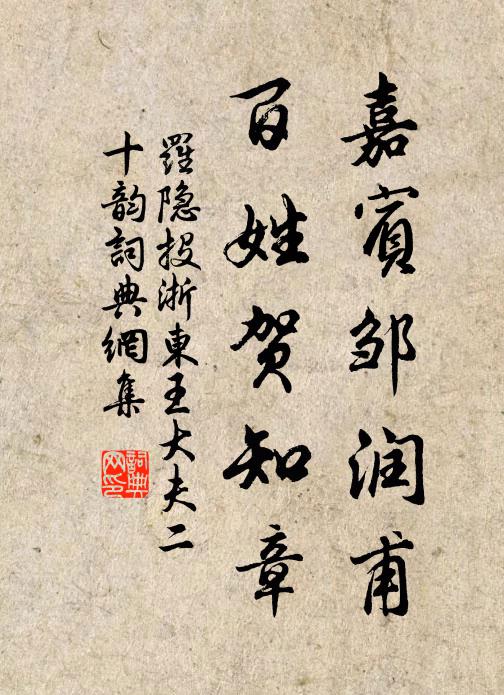 嘉賓邹润甫
百姓贺知章
羅隐投浙東王大夫二
十韵詞典網集
詞典
网印